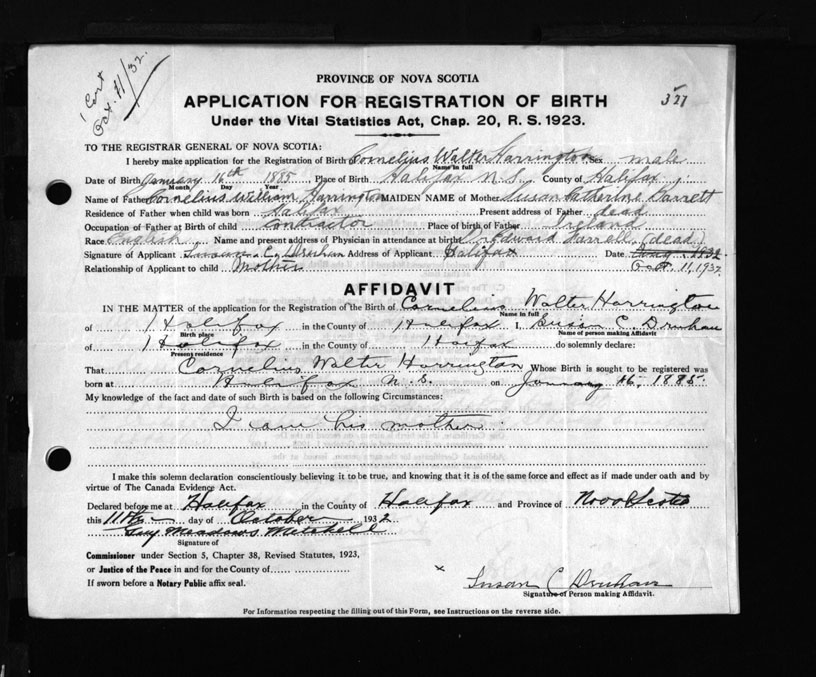 Cert
Oct. 11/32.
PROVINCE OF NOVA SCOTIA
APPLICATION FOR REGISTRATION OF BIRTH
Under the Vital Statistics Act, Chap. 20, R. S. 1923.
TO THE REGISTRAR GENERAL OF NOVA SCOTIA:
I hereby make application for the Registration of Birth Cornelius Walter Harrington Sex male
Name in full
Date of Birth January 16th 1885 Place of Birth Halifax N.S. County of Halifax
Month Day Year
Name of Father Cornelius William Harrington MAIDEN NAME of Mother Susan Catherine Garrett
Residence of Father when child was born Halifax Present address of Father dead
Occupation of Father at Birth of child Contractor Place of birth of Father Ireland
Race English Name and present address of Physician in attendance at birth Dr. Edward Farrell, (dead)
Signature of Applicant Susan C. Druhan Address of Applicant Halifax Date 1932
Relationship of Applicant to child Mother Oct. 11, 1932.
AFFIDAVIT
IN THE MATTER of the application for the Registration of the Birth of Cornelius Walter Harrington
Name in full
of Halifax in the County of Halifax I, Susan C. Druhan
Birth place Name of person making Affidavit
of Halifax in the County of Halifax do solemnly declare:
Present residence
That Cornelius Walter Harrington Whose Birth is sought to be registered was
born at Halifax N.S. on January 16, 1885.
My knowledge of the fact and date of such Birth is based on the following Circumstances:
I am his mother.
I make this solemn declaration conscientiously believing it to be true, and knowing that it is of the same force and effect as if made under oath and by
virtue of The Canada Evidence Act.
Declared before me at Halifax in the County of Halifax and Province of Nova Scotia
this 11th day of October 1932
Guy Meadows Mitchell
Signature of
Commissioner under Section 5, Chapter 38, Revised Statutes, 1923,
or Justice of the Peace in and for the County of
If sworn before a Notary Public affix seal.
x Susan C Druhan
Signature of Person making Affidavit.
For Information respecting the filling out of this Form, see Instructions on the reverse side.